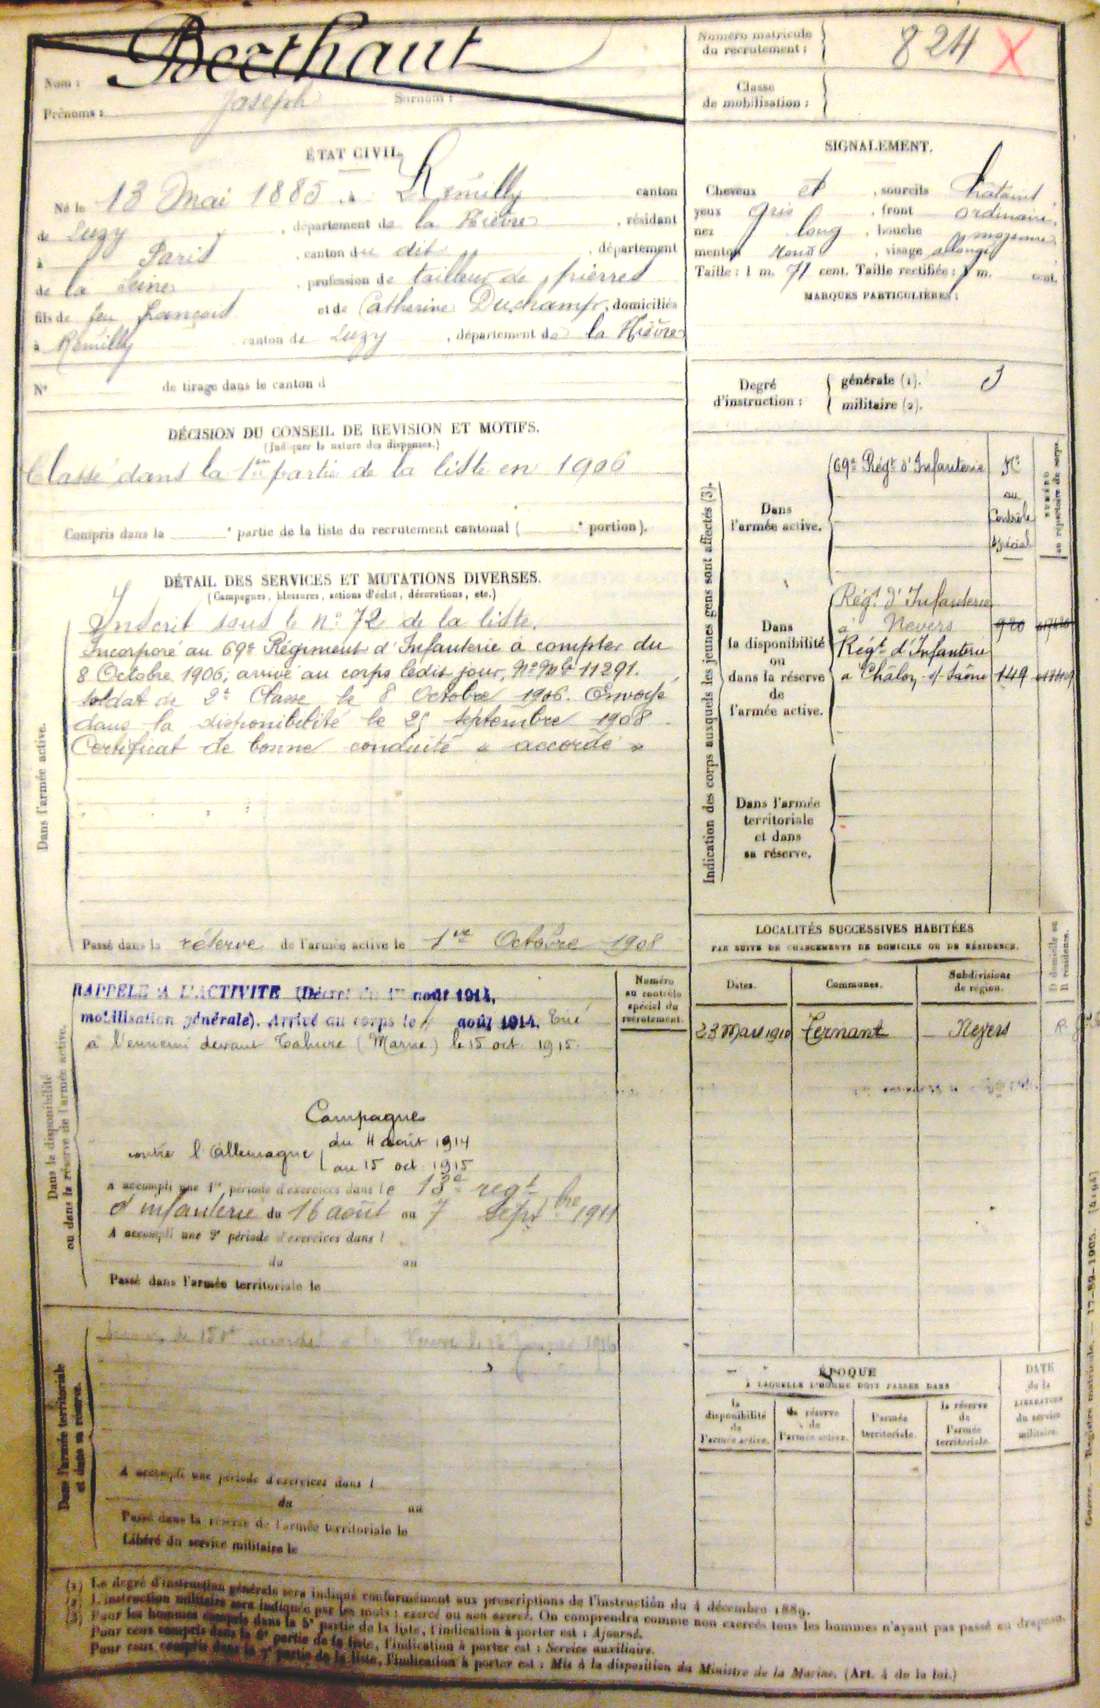 Nom : Berthaut
Prénoms : Joseph Surnom :
Numéro matricule
du recrutement : 824 X
Classe
de mobilisation :
ÉTAT CIVIL.
Né le 13 Mai 1885 à Rémilly canton
de Luzy, département de la Nièvre, résidant
à Paris, canton du dit, département
de la Seine, profession de tailleur de pierres
fils de feu François et de Catherine Duchamp, domiciliés
à Rémilly canton de Luzy, département de la Nièvre
N° de tirage dans le canton d
SIGNALEMENT.
Cheveux et, sourcils châtains
yeux gris, front ordinaire,
nez long, bouche moyenne,
menton rond, visage allongé
Taille : 1 m. 71 cent. Taille rectifiée : 1 m. cent.
MARQUES PARTICULIÈRES :
Degré
d'instruction :
générale (1). 3
militaire (2).
DÉCISION DU CONSEIL DE REVISION ET MOTIFS.
(Indiquer la nature des dispenses.)
Classé dans la 1ère partie de la liste en 1906
Compris dans la ° partie de la liste du recrutement cantonal ( ° portion).
DÉTAIL DES SERVICES ET MUTATIONS DIVERSES.
(Campagnes, blessures, actions d'éclat, décorations, etc.)
Dans l'armée active.
Inscrit sous le n° 72 de la liste.
Incorporé au 69e Régiment d'Infanterie à compter du
8 Octobre 1906, arrivé au corps ledit jour, N° Mle 11291.
soldat de 2e Classe le 8 Octobre 1906. Envoyé
dans la disponibilité le 25 septembre 1908
Certificat de bonne conduite « accordé »
Passé dans la réserve de l'armée active le 1er Octobre 1908
Indication des corps auxquels les jeunes gens sont affectés (3).
Dans
l'armée active.
69e Régt d'Infanterie
N°
au
Contrôle
spécial
NUMÉRO
au répertoire du corps.
Dans
la disponibilité
ou
dans la réserve
de
l'armée active.
Régt d'Infanterie
à Nevers
Régt d'Infanterie
à Châlon s/ Saône 149
Dans l'armée
territoriale
et dans
sa réserve.
LOCALITÉS SUCCESSIVES HABITÉES
PAR SUITE DE CHANGEMENTS DE DOMICILE OU DE RÉSIDENCE.
Dates. Communes. Subdivisions
de région.
D domicile ou
R résidence.
23 Mars 1910 Ternant Nevers R
Dans la disponibilité
ou dans la réserve de l'armée active.
Numéro
au contrôle
spécial du
recrutement.
RAPPELÉ A L'ACTIVITE (Décret du 1er août 1914,
mobilisation générale). Arrivé au corps le 4 août 1914. Tué
à l'ennemi devant Tahure (Marne) le 15 oct. 1915.
Campagnes
contre l'Allemagne
du 4 août 1914
au 15 oct. 1915
A accompli une 1re période d'exercices dans le 13e régt
d'infanterie du 16 août au 7 septbre 1911
A accompli une 2e période d'exercices dans l
du au
Passé dans l'armée territoriale le
Dans l'armée territoriale
et dans sa réserve.
Secours de 150f accordé à la Veuve le
A accompli une période d'exercices dans l
du au
Passé dans la réserve de l'armée territoriale le
Libéré du service militaire le
ÉPOQUE
À LAQUELLE L'HOMME DOIT PASSER DANS
la
disponibilité
de
l'armée active.
la réserve
de
l'armée active.
l'armée
territoriale.
la réserve
de
l'armée
territoriale.
DATE
de la
LIBÉRATION
du service
militaire.
(1) Le degré d'instruction générale sera indiqué conformément aux prescriptions de l'instruction du 4 décembre 1889.
(2) L'instruction militaire sera indiquée par les mots : exercé ou non exercé. On comprendra comme non exercés tous les hommes n'ayant pas passé au drapeau.
(3) Pour les hommes compris dans la 5e partie de la liste, l'indication à porter est : Ajourné.
Pour ceux compris dans la 6e partie de la liste, l'indication à porter est : Service auxiliaire.
Pour ceux compris dans la 7e partie de la liste, l'indication à porter est : Mis à la disposition du Ministre de la Marine. (Art. 4 de la loi.)
Guerre. — Registre matricule. — 17-89-1905.